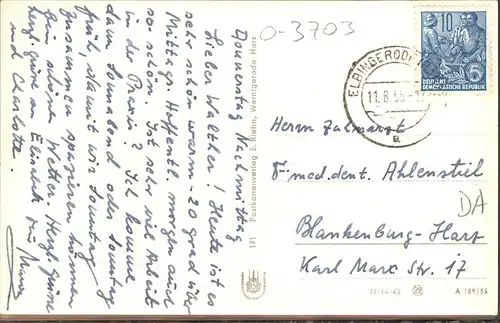 O-3703
Donnerstag Nachmittag
Lieber Walther! Heute ist es
sehr schön warm - 20 grad über
Mittag. Hoffentl. morgen auch
so schön. Ist sehr viel Arbeit
in der Praxis? Ich komme
dann Sonnabend oder Sonntag
früh, damit wir Sonntag
zusammen spazieren können
schöne Wetter. Herzl. Grüsse
herzl. grüsse an Elisabeth
und Charlotte.
191 Postkartenverlag E. Riehn, Wernigerode, Harz
ELBINGERODE
11.8.56
a
10
5
DEUTSCHE
DEMOKRATISCHE REPUBLIK
Herrn Zahnarzt
Dr. med. dent. Ahlenstiel
DA
Blankenburg-Harz
Karl Marx Str. 17
IV-14-45
A 189/56